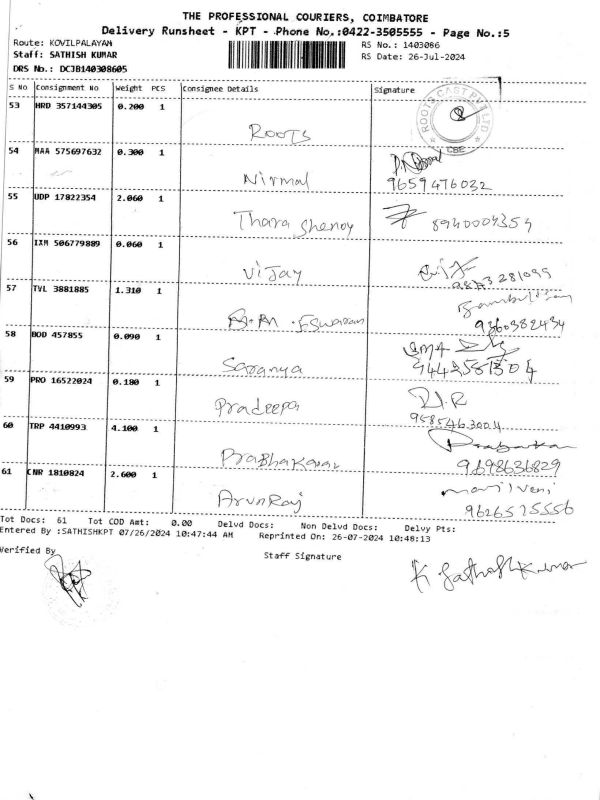 THE PROFESSIONAL COURIERS, COIMBATORE
Delivery Runsheet - KPT - Phone No.:0422-3505555 - Page No.:5
Route: KOVILPALAYAM
RS No.: 1403086
Staff: SATHISH KUMAR
RS Date: 26-Jul-2024
DRS No.: DCJB140308605
S No Consignment No Weight PCS Consignee Details Signature
53 HRD 357144305 0.200 1
ROOTS CAST PVT LTD
CBE
ROOTS
54 MAA 575697632 0.300 1
Nirmal 9659476032
55 UDP 17822354 2.060 1
Thara Shenoy 8940004354
56 IXM 506779889 0.060 1
Vijay
57 TVL 3881885 1.310 1
Eswaran 9360382434
58 BOD 457855 0.090 1
Saranya
59 PRO 16522024 0.180 1
Pradeepa
60 TRP 4410993 4.100 1
Prabhakaran 9698636829
61 CNR 1810824 2.600 1
ArunRaj
Tot Docs: 61 Tot COD Amt: 0.00 Delvd Docs: Non Delvd Docs: Delvy Pts:
Entered By :SATHISHKPT 07/26/2024 10:47:44 AM Reprinted On: 26-07-2024 10:48:13
Verified By
Staff Signature
K Sathish Kumar